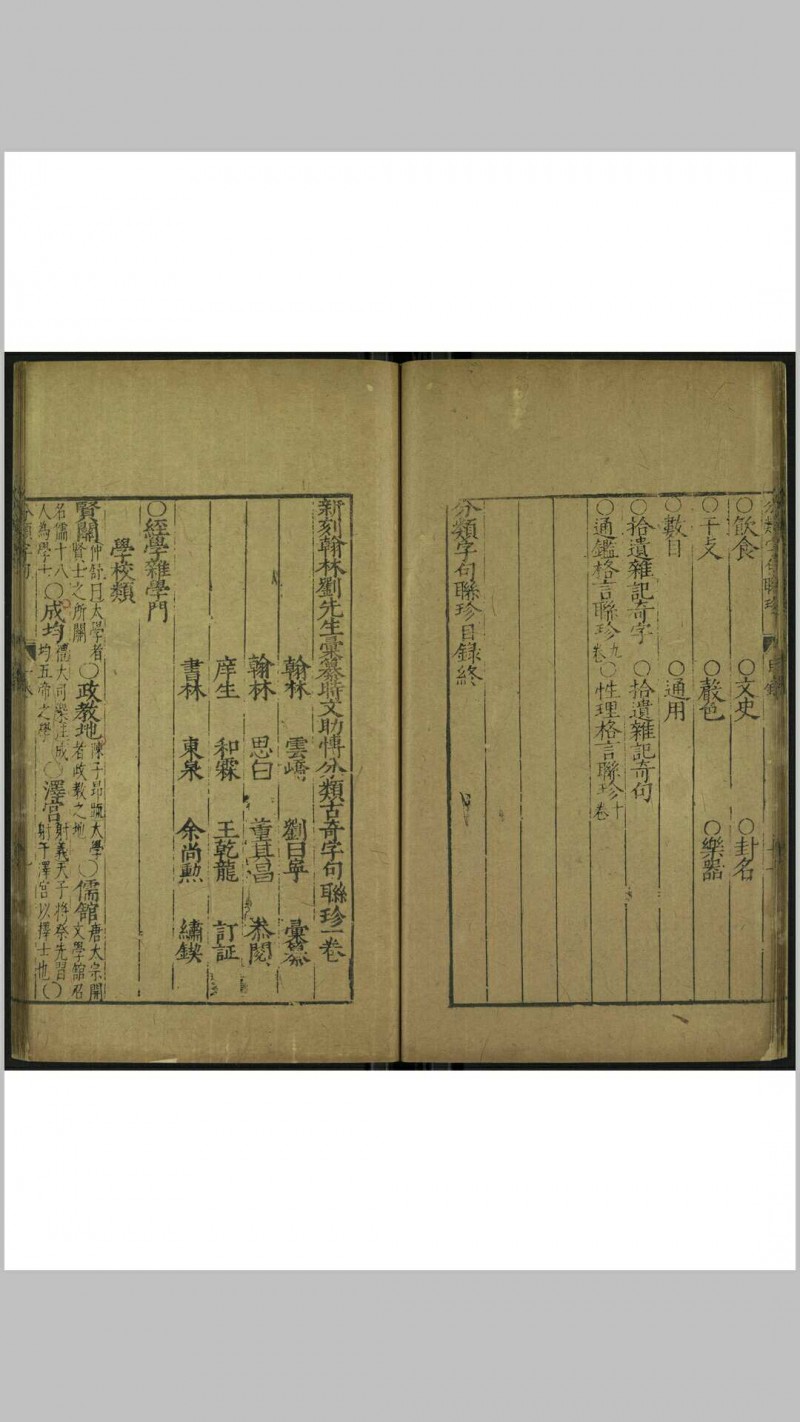 分類字句聯珍 目錄
○飲食 ○文史 ○封名
○干支 ○聲色 ○樂器
○數目 ○通用
○拾遺雜記奇字 ○拾遺雜記奇句
○通鑑格言聯珍卷九 ○性理格言聯珍卷十
分類字句聯珍目録終
新刻翰林劉先生彙纂時文助博分類古奇字句聯珍一卷
翰林 雲嶠 劉曰寧 彙纂
翰林 思白 董其昌 叅閱
庠生 和霖 王乾龍 訂証
書林 東泉 余尚勲 繡鍥
○經學雜學門
學校類
賢關 仲舒曰太學者賢士之所關 ○政教地 陳子昻疏太學者政教之地 ○儒館 唐太宗開文學館召
名儒十八人為學士 ○成均 禮大司樂註成均五帝之學 ○澤宮 射義天子將祭先習射于澤宮以擇士也 ○